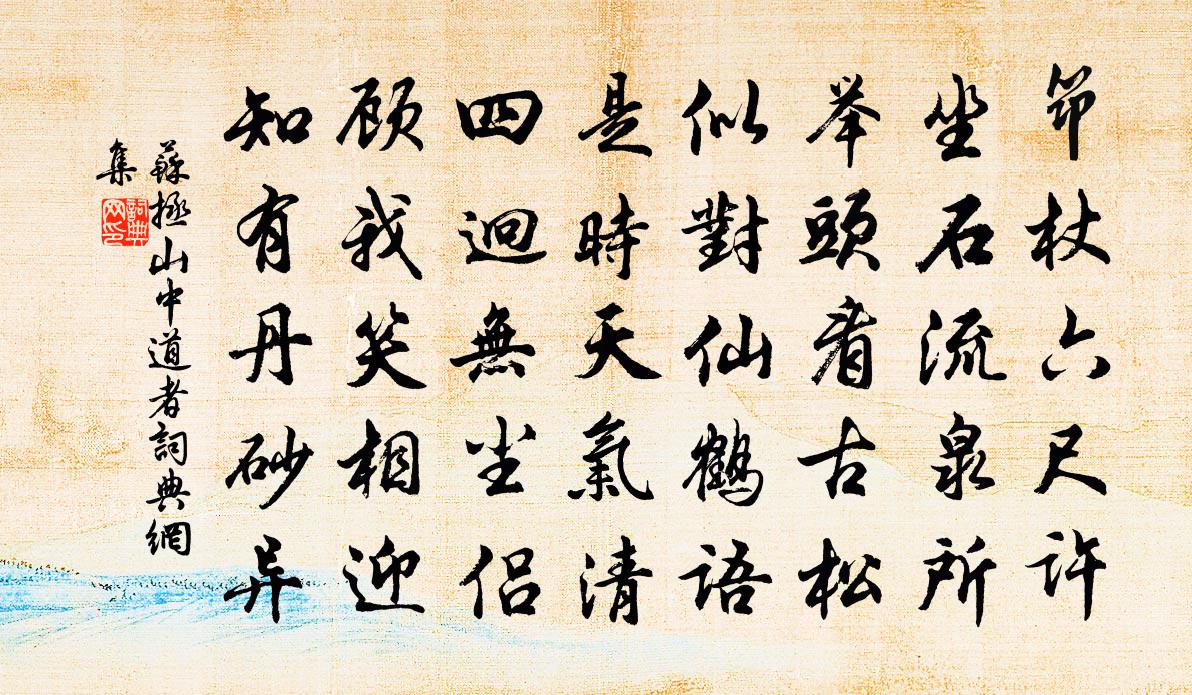 笻杖六尺許
坐石流泉所
举頭看古松
似對仙鶴語
是時天氣清
四迥無尘侣
顾我笑相迎
知有丹砂异
蘇拯山中道者詞典網
集
詞典
网印